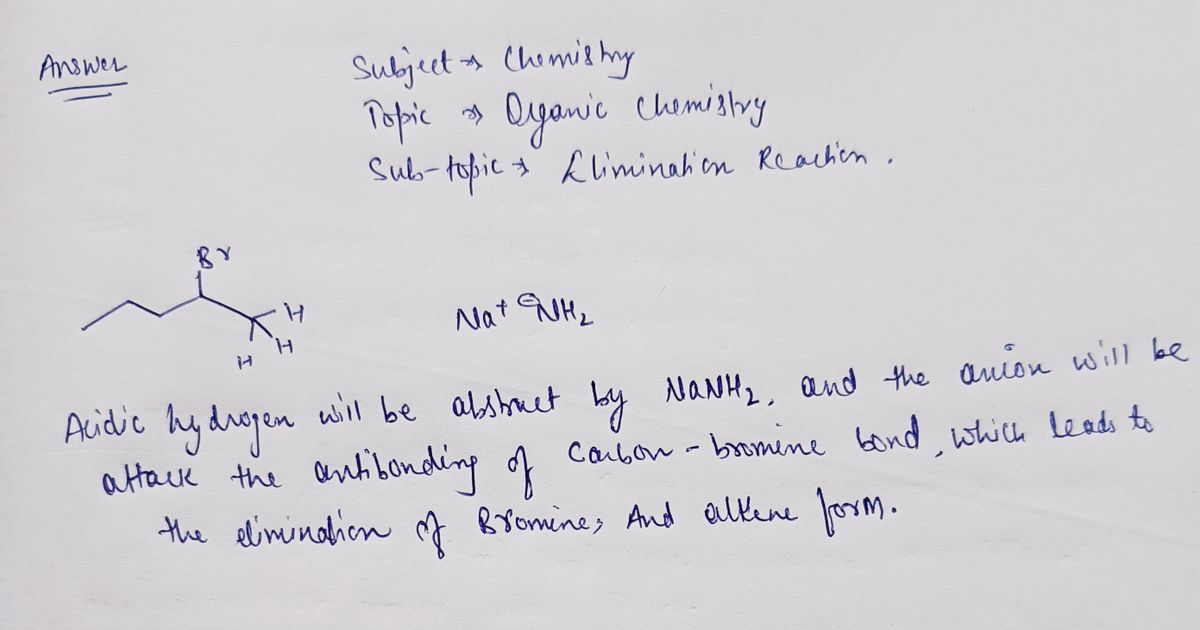 Answer
Subject → Chemistry
Topic → Organic Chemistry
Sub-topic → Elimination Reaction.
Br
H
H
H
Na⁺ ⊖NH₂
Acidic hydrogen will be abstract by NaNH₂, and the anion will be
attack the antibonding of Carbon-bromine bond, which leads to
the elimination of Bromine, And alkene form.